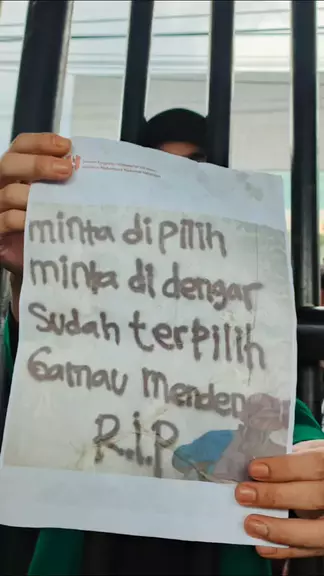 minta dipilih
minta di dengar
Sudah terpilih
Gamau menden
R.I.P